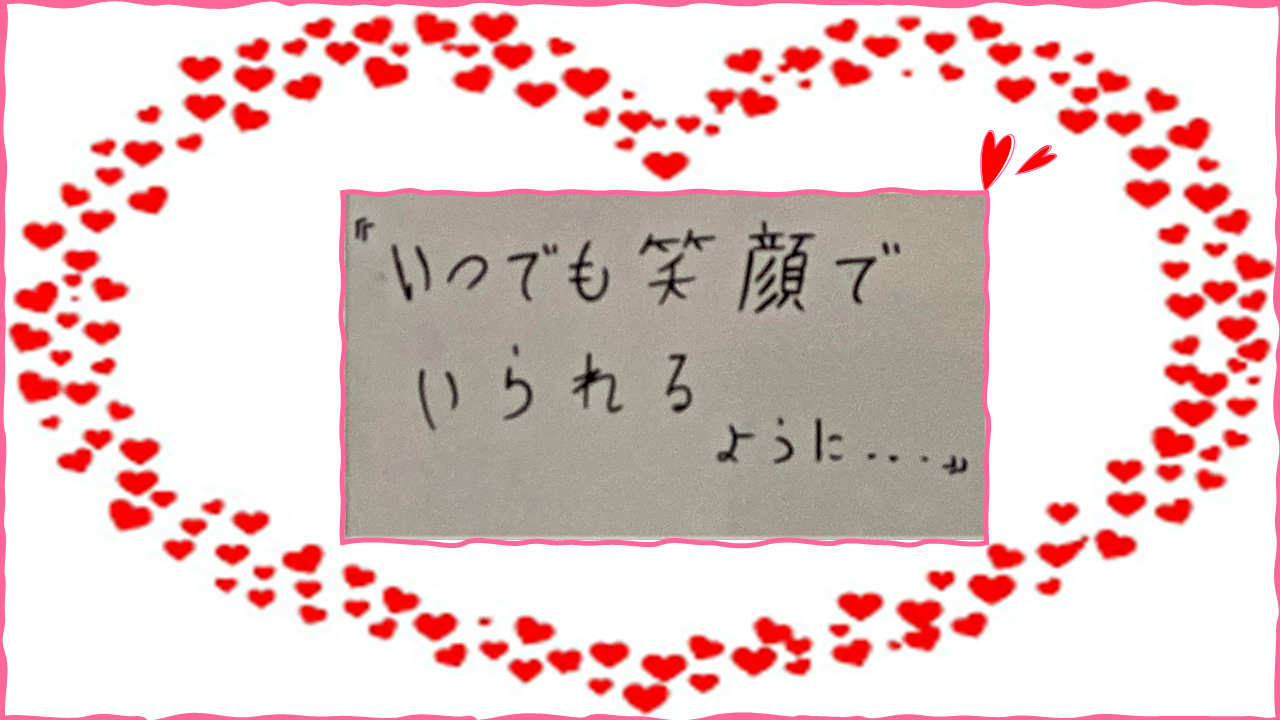 『いつでも笑顔で
いられる
ように...』